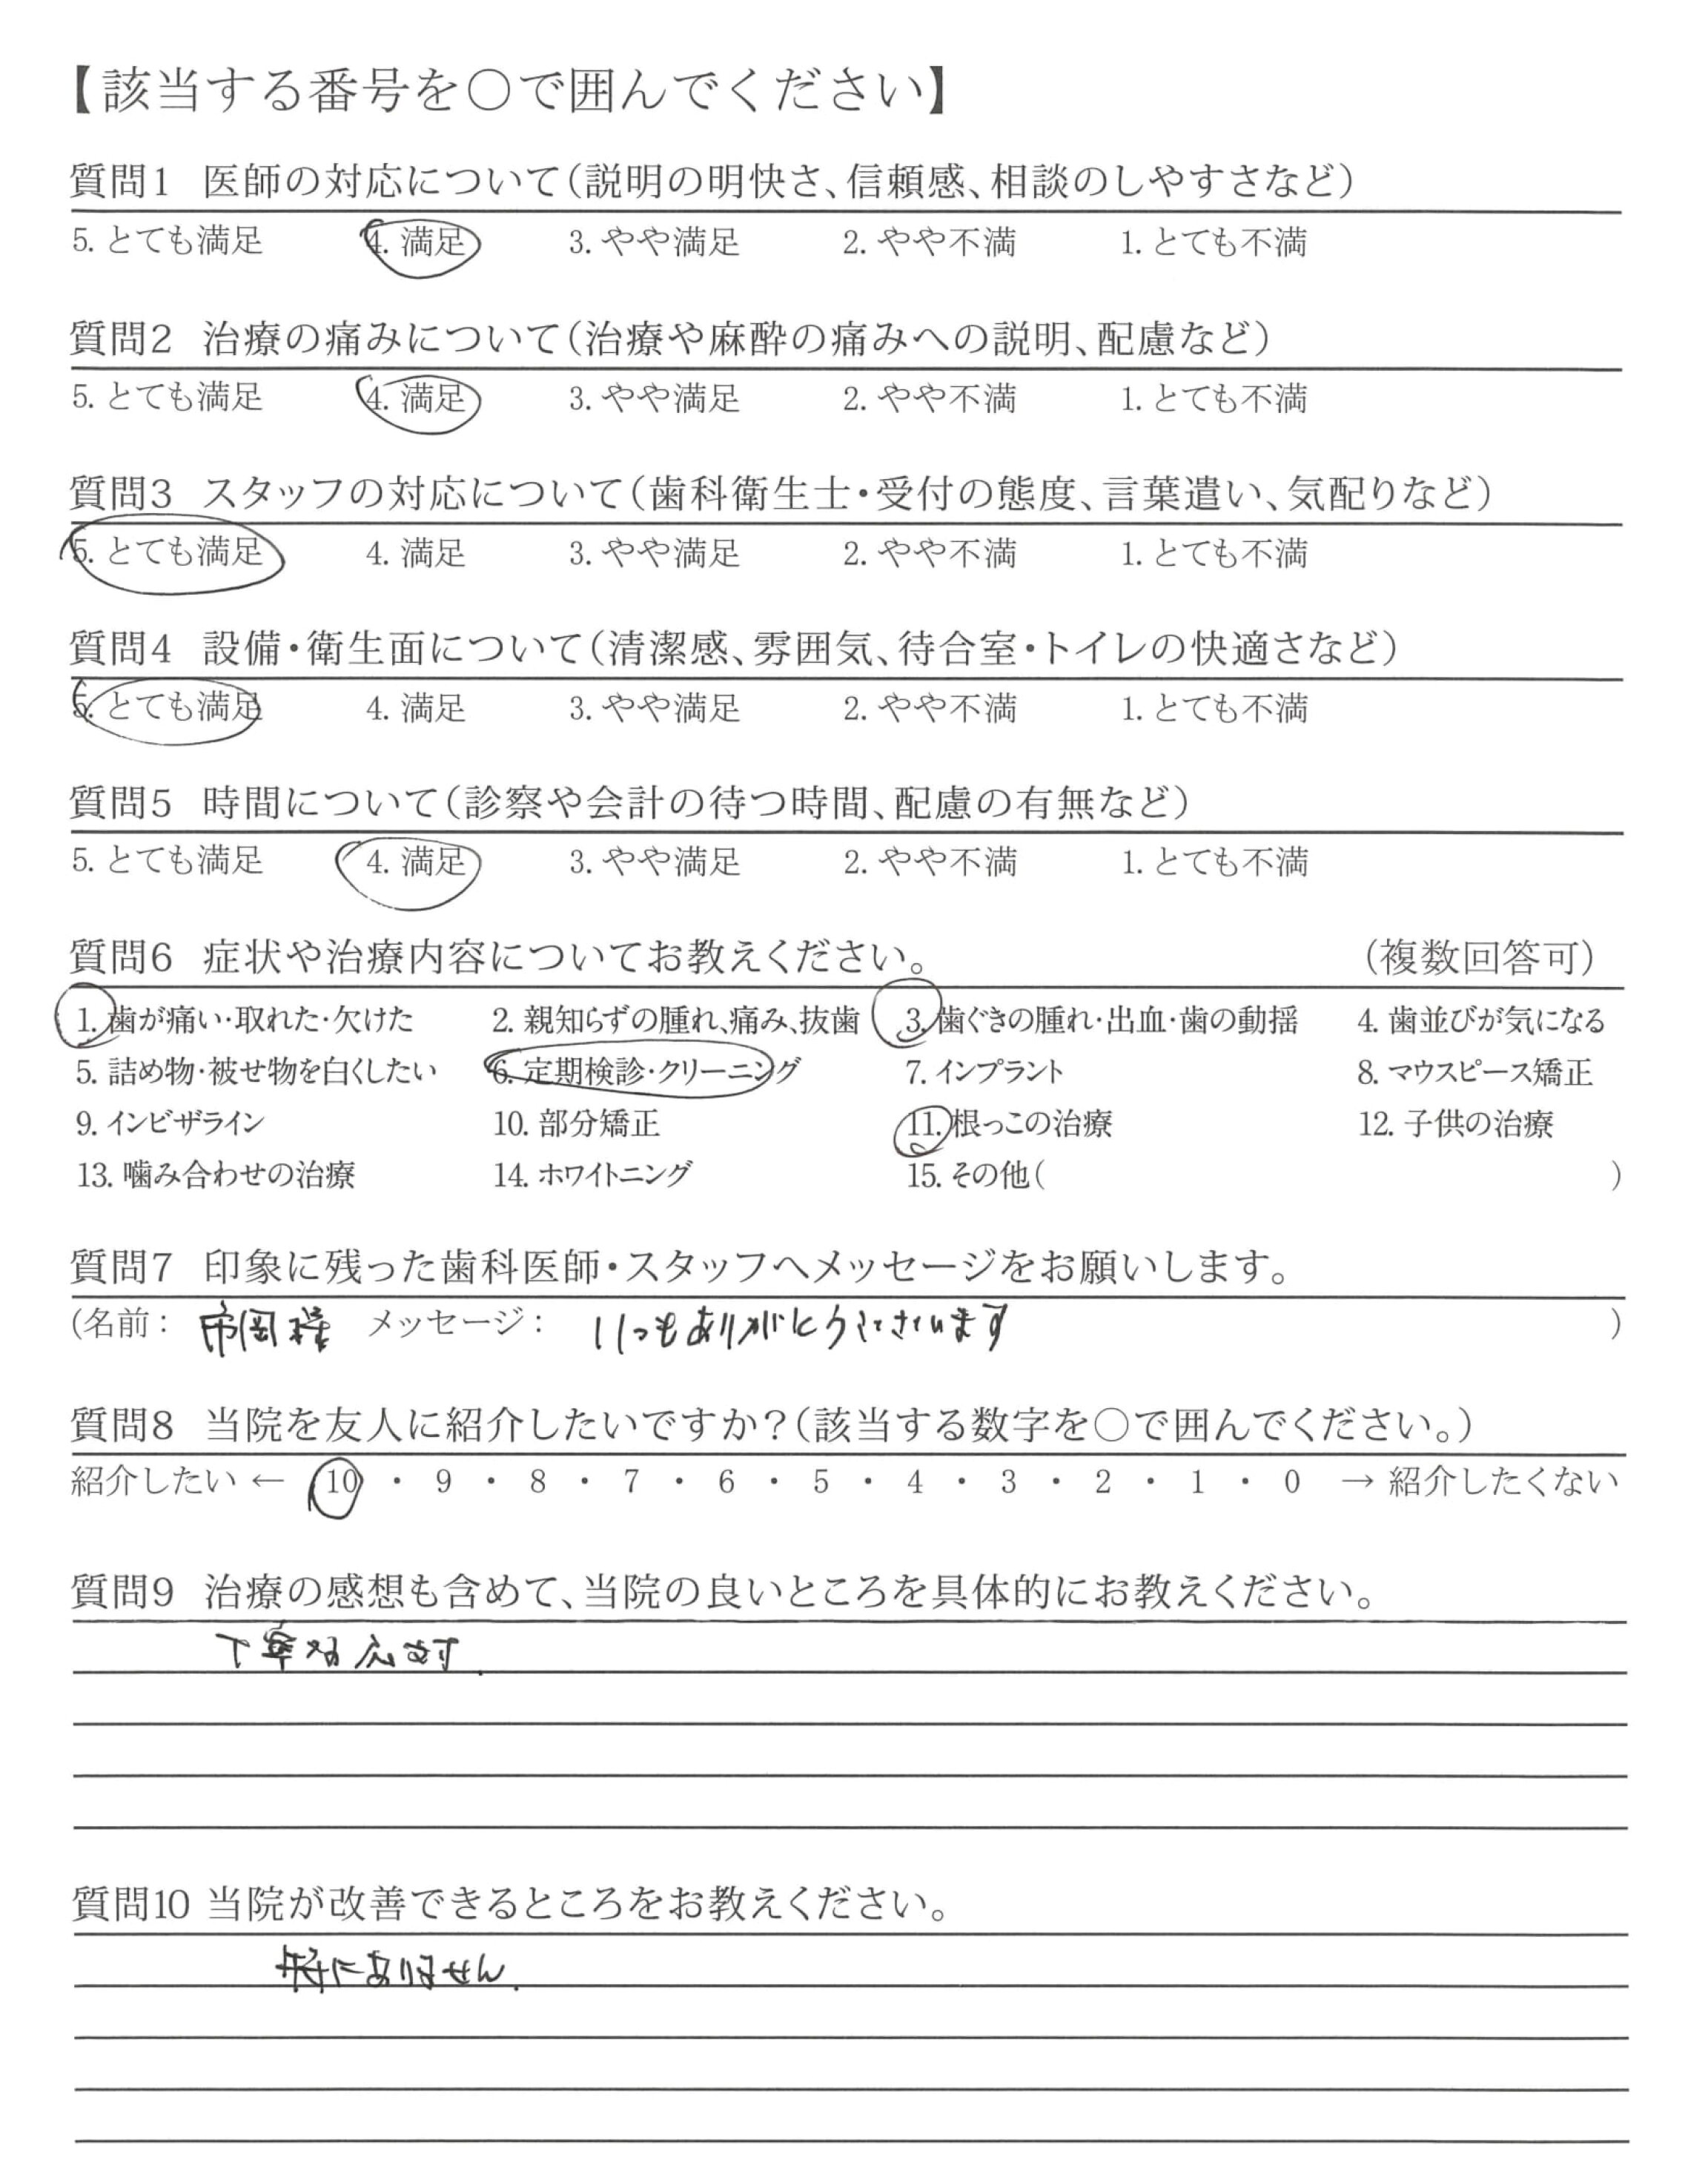 【該当する番号を○で囲んでください】
質問1 医師の対応について(説明の明快さ、信頼感、相談のしやすさなど)
5. とても満足 4. 満足 3. やや満足 2. やや不満 1. とても不満
質問2 治療の痛みについて(治療や麻酔の痛みへの説明、配慮など)
5. とても満足 4. 満足 3. やや満足 2. やや不満 1. とても不満
質問3 スタッフの対応について(歯科衛生士・受付の態度、言葉遣い、気配りなど)
5. とても満足 4. 満足 3. やや満足 2. やや不満 1. とても不満
質問4 設備・衛生面について(清潔感、雰囲気、待合室・トイレの快適さなど)
5. とても満足 4. 満足 3. やや満足 2. やや不満 1. とても不満
質問5 時間について(診察や会計の待つ時間、配慮の有無など)
5. とても満足 4. 満足 3. やや満足 2. やや不満 1. とても不満
質問6 症状や治療内容についてお教えください。 (複数回答可)
1. 歯が痛い・取れた・欠けた 2. 親知らずの腫れ、痛み、抜歯 3. 歯ぐきの腫れ・出血・歯の動揺 4. 歯並びが気になる
5. 詰め物・被せ物を白くしたい 6. 定期検診・クリーニング 7. インプラント 8. マウスピース矯正
9. インビザライン 10. 部分矯正 11. 根っこの治療 12. 子供の治療
13. 噛み合わせの治療 14. ホワイトニング 15. その他( )
質問7 印象に残った歯科医師・スタッフへメッセージをお願いします。
(名前: 市岡様 メッセージ: いつもありがとうございます )
質問8 当院を友人に紹介したいですか?(該当する数字を○で囲んでください。)
紹介したい ← 10 ・ 9 ・ 8 ・ 7 ・ 6 ・ 5 ・ 4 ・ 3 ・ 2 ・ 1 ・ 0 → 紹介したくない
質問9 治療の感想も含めて、当院の良いところを具体的にお教えください。
丁寧な応対.
質問10 当院が改善できるところをお教えください。
特にありません.